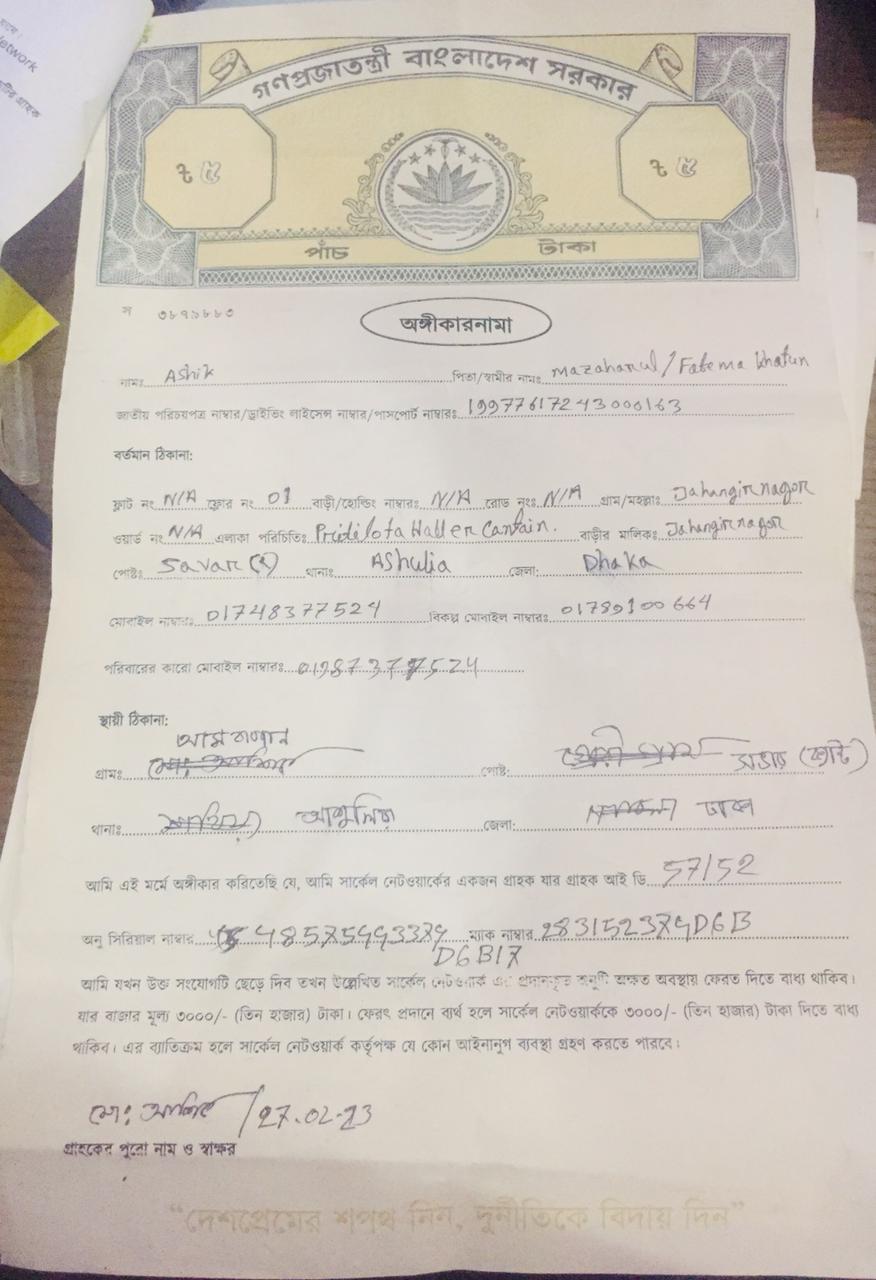 etwork
গণপ্রজাতন্ত্রী বাংলাদেশ সরকার
৳ ৫ ৳ ৫
পাঁচ টাকা
স ৩৮৭৯৮৮৩
অঙ্গীকারনামা
নামঃ Ashik পিতা/স্বামীর নামঃ Mazaharul/Fatema Khatun
জাতীয় পরিচয়পত্র নাম্বার/ড্রাইভিং লাইসেন্স নাম্বার/পাসপোর্ট নাম্বারঃ 19977617243000163
বর্তমান ঠিকানা:
ফ্লাট নং N/A ফ্লোর নং 01 বাড়ী/হোল্ডিং নাম্বারঃ N/A রোড নংঃ N/A গ্রাম/মহল্লাঃ Jahangirnagor
ওয়ার্ড নং N/A এলাকা পরিচিতিঃ Pridilota Haller Cantain. বাড়ীর মালিকঃ Jahangirnagor
পোষ্টঃ Savar থানাঃ Ashulia জেলা: Dhaka
মোবাইল নাম্বারঃ 01748377524 বিকল্প মোবাইল নাম্বারঃ 01789100664
পরিবারের কারো মোবাইল নাম্বারঃ
স্থায়ী ঠিকানা:
গ্রামঃ পোষ্ট:
থানাঃ আশুলিয়া জেলা: ঢাকা
আমি এই মর্মে অঙ্গীকার করিতেছি যে, আমি সার্কেল নেটওয়ার্কের একজন গ্রাহক যার গ্রাহক আই ডি 57152
অনু সিরিয়াল নাম্বার ম্যাক নাম্বার
D6B17
আমি যখন উক্ত সংযোগটি ছেড়ে দিব তখন উল্লেখিত সার্কেল নেটওয়ার্ক এর প্রদানকৃত অনুটি অক্ষত অবস্থায় ফেরত দিতে বাধ্য থাকিব।
যার বাজার মূল্য ৩০০০/- (তিন হাজার) টাকা। ফেরৎ প্রদানে ব্যর্থ হলে সার্কেল নেটওয়ার্ককে ৩০০০/- (তিন হাজার) টাকা দিতে বাধ্য
থাকিব। এর ব্যতিক্রম হলে সার্কেল নেটওয়ার্ক কর্তৃপক্ষ যে কোন আইনানুগ ব্যবস্থা গ্রহণ করতে পারবে।
মো: আশিক /27.02-23
গ্রাহকের পুরো নাম ও স্বাক্ষর
“দেশপ্রেমের শপথ নিন, দুর্নীতিকে বিদায় দিন”